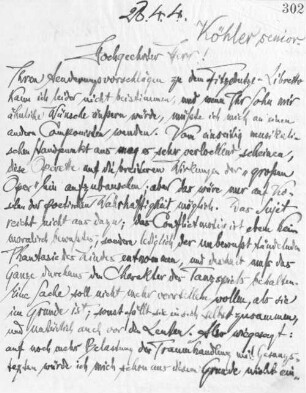 302
26.4.4.
Köhler senior
Hochgeehrter Herr!
Ihren Aenderungsvorschlägen zu dem Fitzebutze-Libretto
kann ich leider nicht beistimmen, und wenn Ihr Sohn wirklich
ähnliche Wünsche äußern würde, müßte ich mich an einen
andern Componisten wenden. Vom einseitig musikalischen
Standpunkt aus mag es sehr verlockend scheinen,
diese Operette auf die breiteren Wirkungen der "großen
Oper" hin aufzubauschen; aber das wäre nur auf Kosten
der poetischen Wahrhaftigkeit möglich. Das Sujet
reicht nicht aus dazu; das Conflictmotiv ist eben kein
moralisch bewußtes, sondern lediglich der unbewußt handelnden
Phantasie des Kindes entnommen, und deshalb muß das
Ganze durchaus den Charakter des Tanzspiels behalten.
Eine Sache soll nicht mehr vorstellen wollen, als sie
im Grunde ist; sonst fällt sie in sich selbst zusammen,
und natürlich auch vor die Leute. Aber wie gesagt:
auf noch mehr Belastung der Traumhandlung mit Gesangstexten
würde ich mich schon aus diesem Grunde nicht ein-